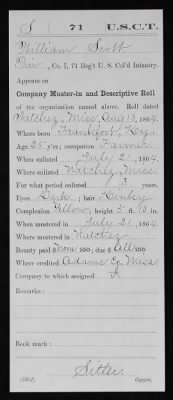 S 71 U.S.C.T.
William Scott
Priv, Co. I, 71 Reg't U. S. Col'd Infantry.
Appears on
Company Muster-in and Descriptive Roll
of the organization named above. Roll dated
Natchez, Miss Aug 13, 1864.
Where born Frankfort, Ky.
Age 25 y'rs; occupation Farmer
When enlisted July 21, 1864.
Where enlisted Natchez, Miss.
For what period enlisted 3 years.
Eyes Dark; hair Kinky
Complexion Yellow; height 5 ft. 10 in.
When mustered in July 21, 1864
Where mustered in Natchez
Bounty paid $None 100; due $All 100
Where credited Adams Co, Miss.
Company to which assigned
Remarks:
Book mark:
Sitler
Copyist.